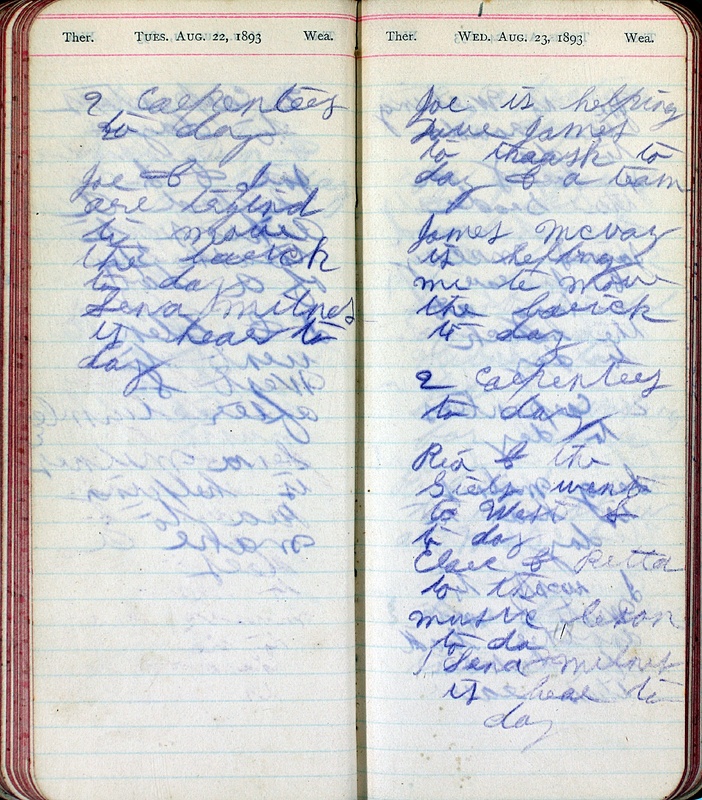 Ther. TUES. AUG. 22, 1893 Wea.
2 Carpenters
to day
Joe & I
are trying
to move
the brick
to day
Lena Milnes
is hear to
day
Ther. WED. AUG. 23, 1893 Wea.
Joe is helping
James
to thrash to
day & a team
James McVay
is helping
me to mow
the brick
to day
2 Carpenters
to day
Rea & the
Girls went
to West
to day
& Retta
to
music leson
to da
Lena Milnes
is hear to
day